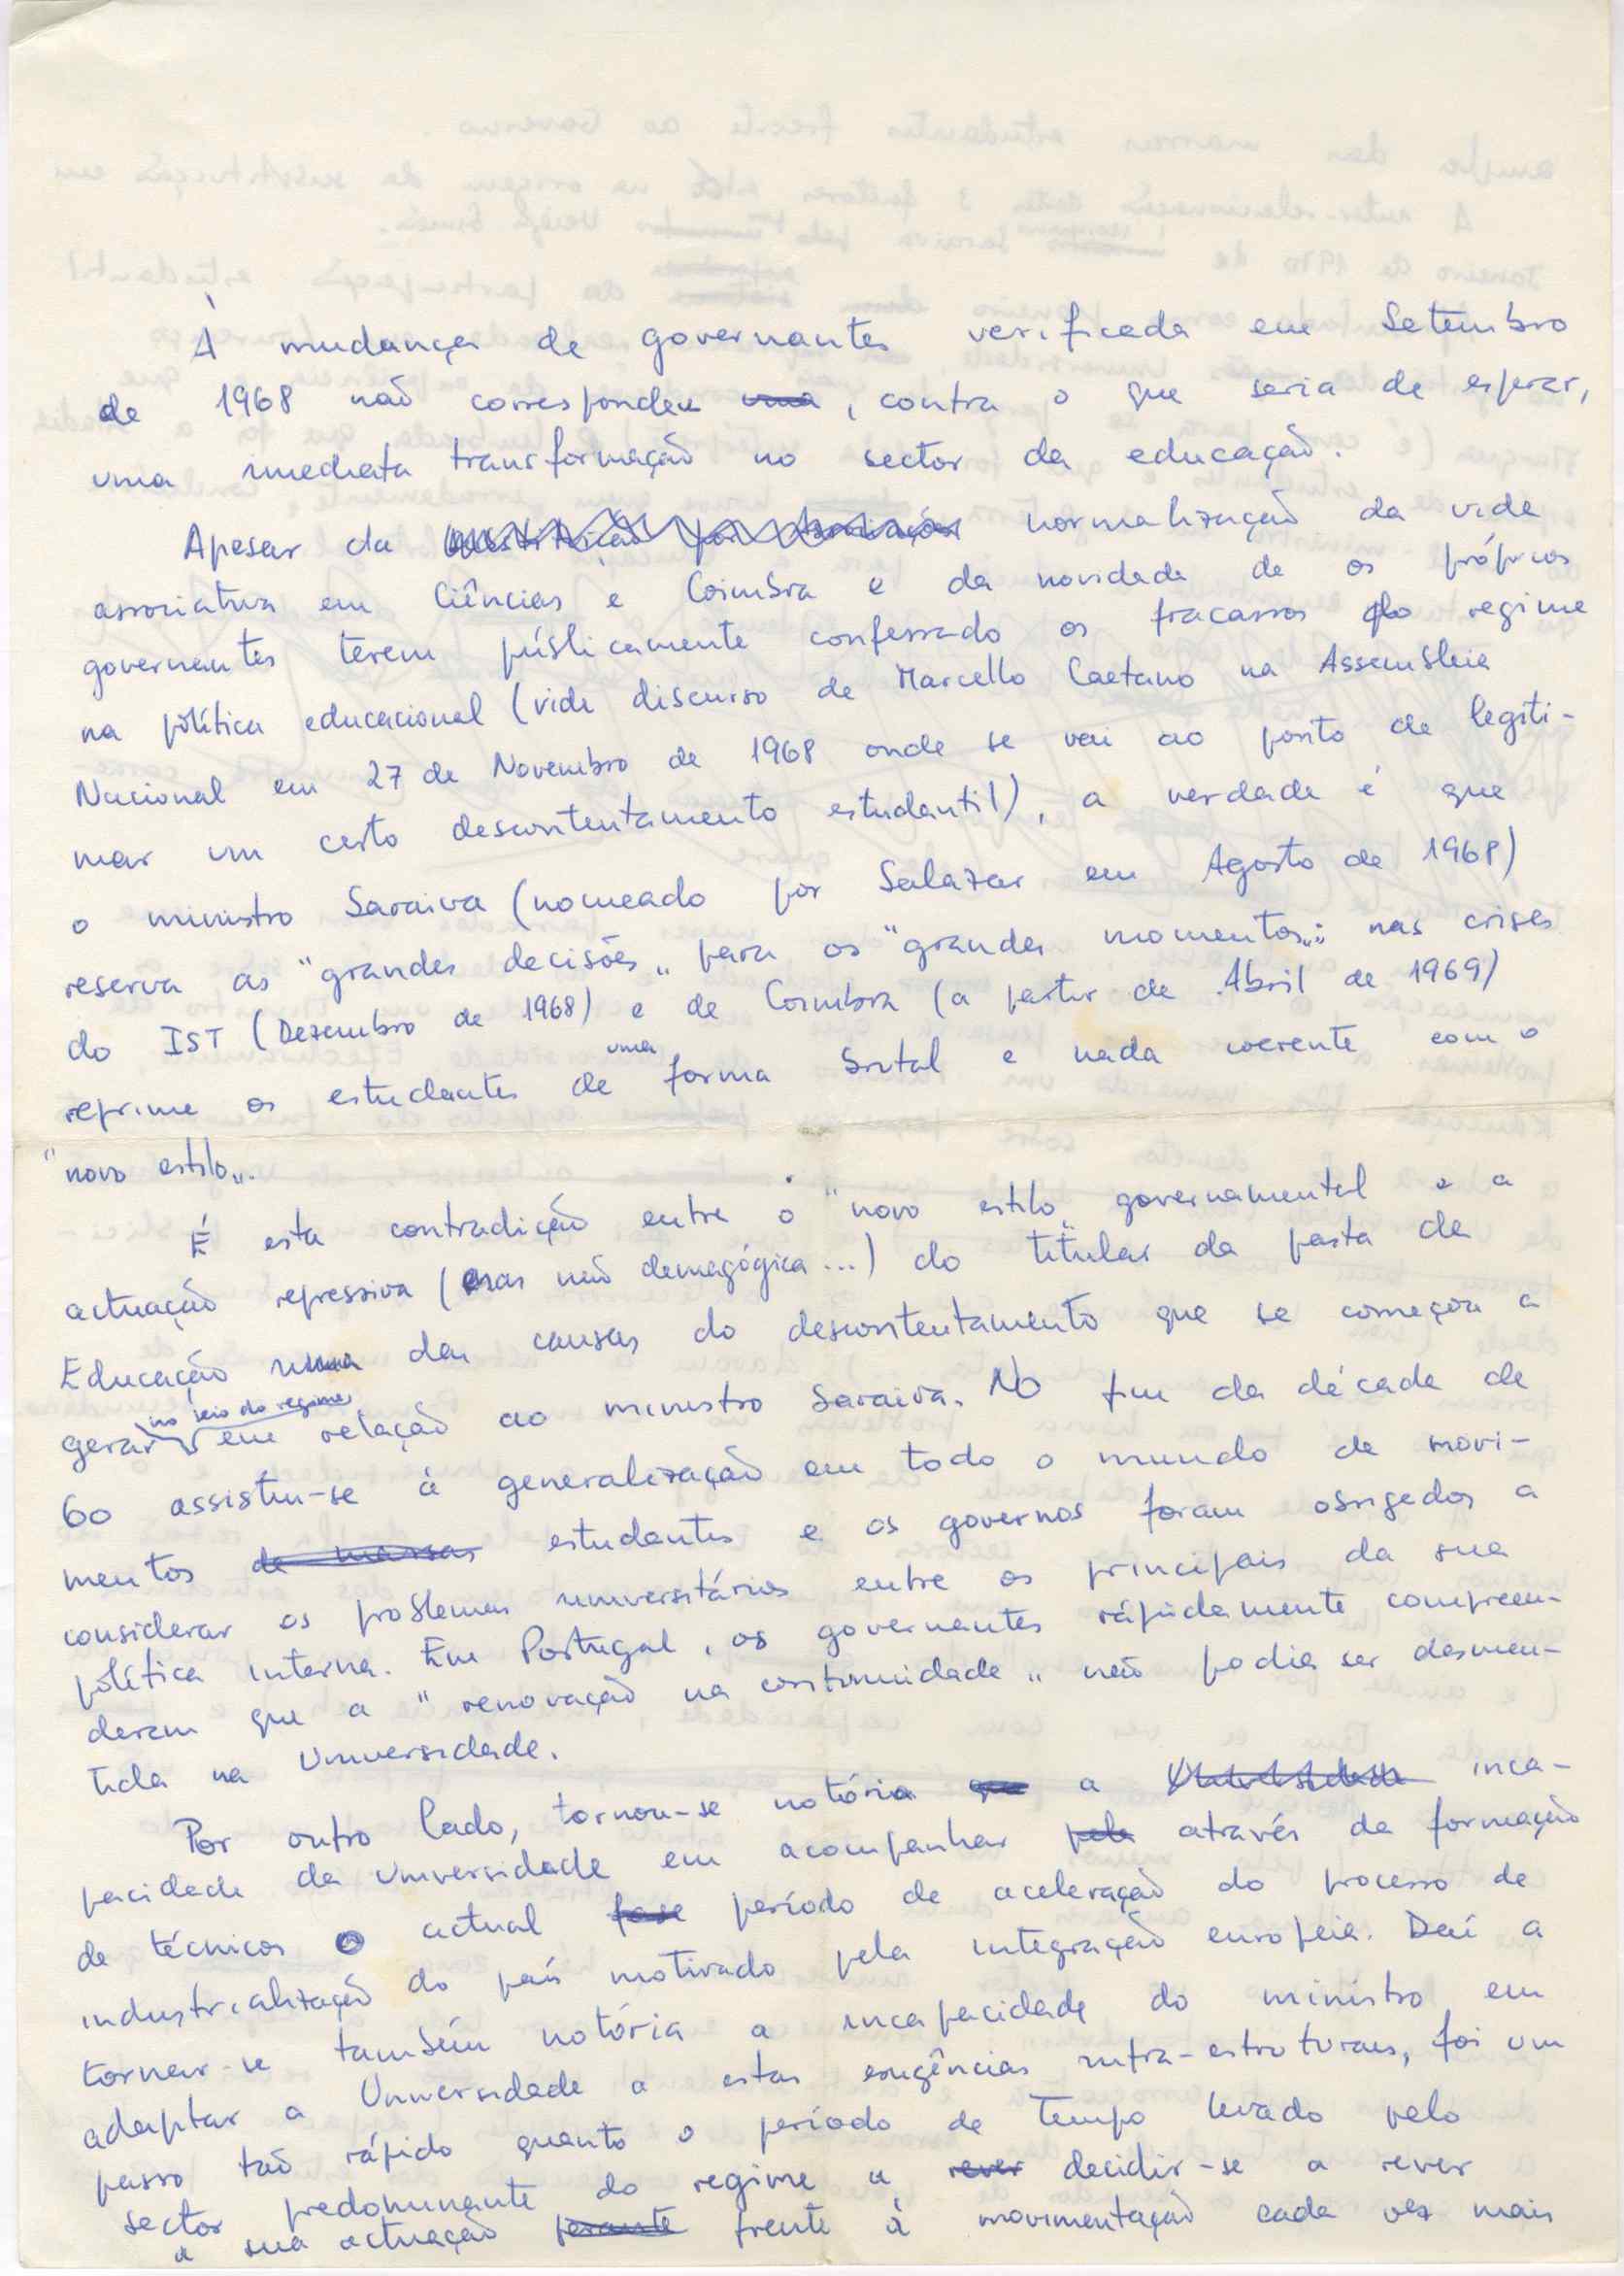 À mudança de governantes verificada em Setembro
de 1968 não correspondeu uma, contra o que seria de esperar,
uma imediata transformação no sector da educação.
Apesar da normalização da vida
associativa em Ciências e Coimbra e da novidade de os próprios
governantes terem públicamente confessado os fracassos do regime
na política educacional (vide discurso de Marcello Caetano na Assembleia
Nacional em 27 de Novembro de 1968 onde se vai ao ponto de legiti-
mar um certo descontentamento estudantil), a verdade é que
o ministro Saraiva (nomeado por Salazar em Agosto de 1968)
reserva as "grandes decisões" para os "grandes momentos": nas crises
do IST (Dezembro de 1968) e de Coimbra (a partir de Abril de 1969)
reprime os estudantes de uma forma brutal e nada coerente com o
"novo estilo".
É esta contradição entre o "novo estilo" governamental e a
actuação repressiva (mas não demagógica...) do titular da pasta da
Educação uma das causas do descontentamento que se começou a
gerar no seio do regime em relação ao ministro Saraiva. No fim da década de
60 assistiu-se à generalização em todo o mundo de movi-
mentos de massas estudantis e os governos foram obrigados a
considerar os problemas universitários entre os principais da sua
política interna. Em Portugal, os governantes rápidamente compreen-
deram que a "renovação na continuidade" não podia ser desmen-
tida na Universidade.
Por outro lado, tornou-se notória que a Universidade inca-
pacidade da Universidade em acompanhar pela através da formação
de técnicos o actual fase período de aceleração do processo de
industrialização do país motivado pela integração europeia. Daí a
tornar-se também notória a incapacidade do ministro em
adaptar a Universidade a estas exigências infra-estruturais, foi um
passo tão rápido quanto o período de tempo levado pelo
sector predominante do regime a rever decidir-se a rever
a sua actuação perante frente à movimentação cada vez mais